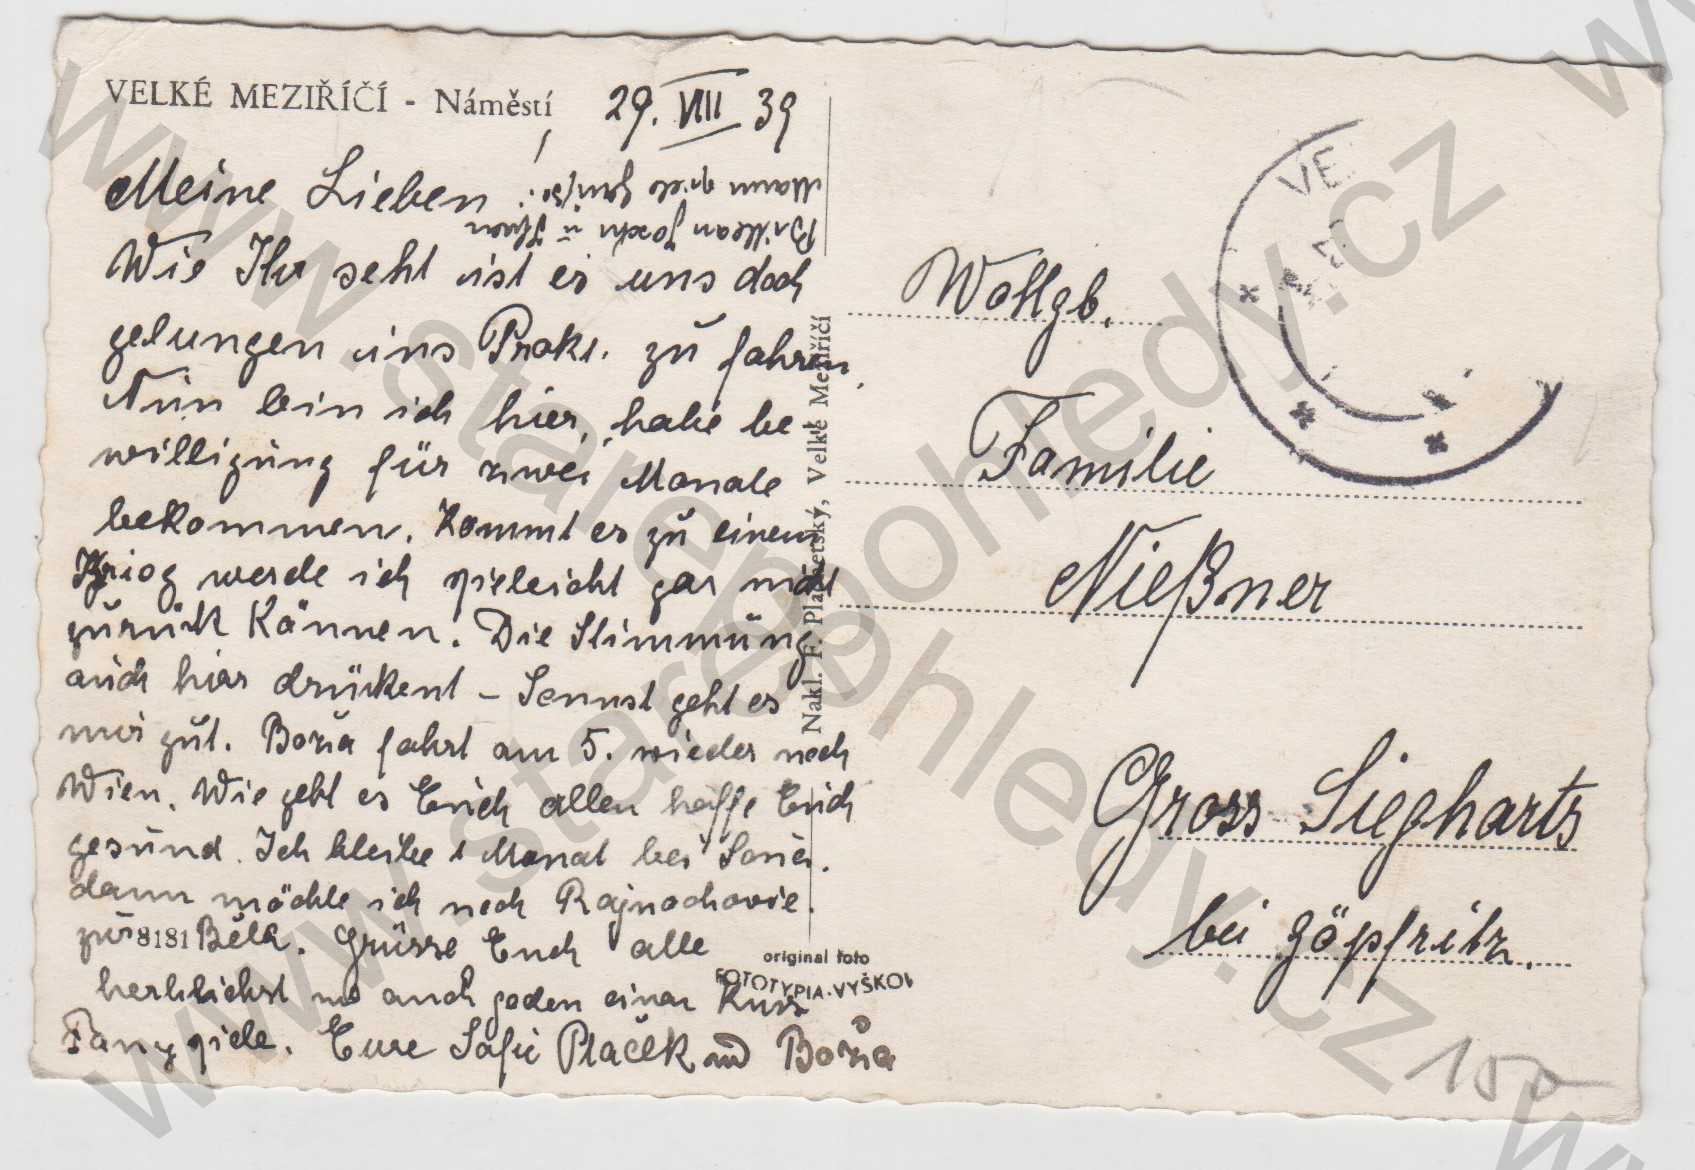 VELKÉ MEZIŘÍČÍ - Náměstí
29. VIII 39
Meine Lieben!
Wie Ihr seht ist es uns doch
gelungen ins Prokt. zu fahren,
Nun bin ich hier, habe be
willigung für zwei Monate
bekommen. Kommt es zu einem
Krieg werde ich vieleicht gar nicht
zurück können. Die Stimmung
auch hier drückent – Sonnst geht es
mir gut. Boža fahrt am 5. wieder nach
Wien. Wie geht es Euch allen hoffe Euch
gesund. Ich bleibe 1 Monat bei
dann möchte ich nach Rajnochovic.
zur Běla. Grüsse Euch alle
8181
herzlichst und auch jeden einen Kuss
Fany viele. Eure Safii Plaček und Boža
original foto
FOTOTYPIA-VYŠKOV
Nakl. F. Velké Meziříčí
Wollgb.
Familie
Nießner
Gross Siegharts
bei Göpfritz.
VE
150
www.starepohledy.cz
www.starepohledy.cz